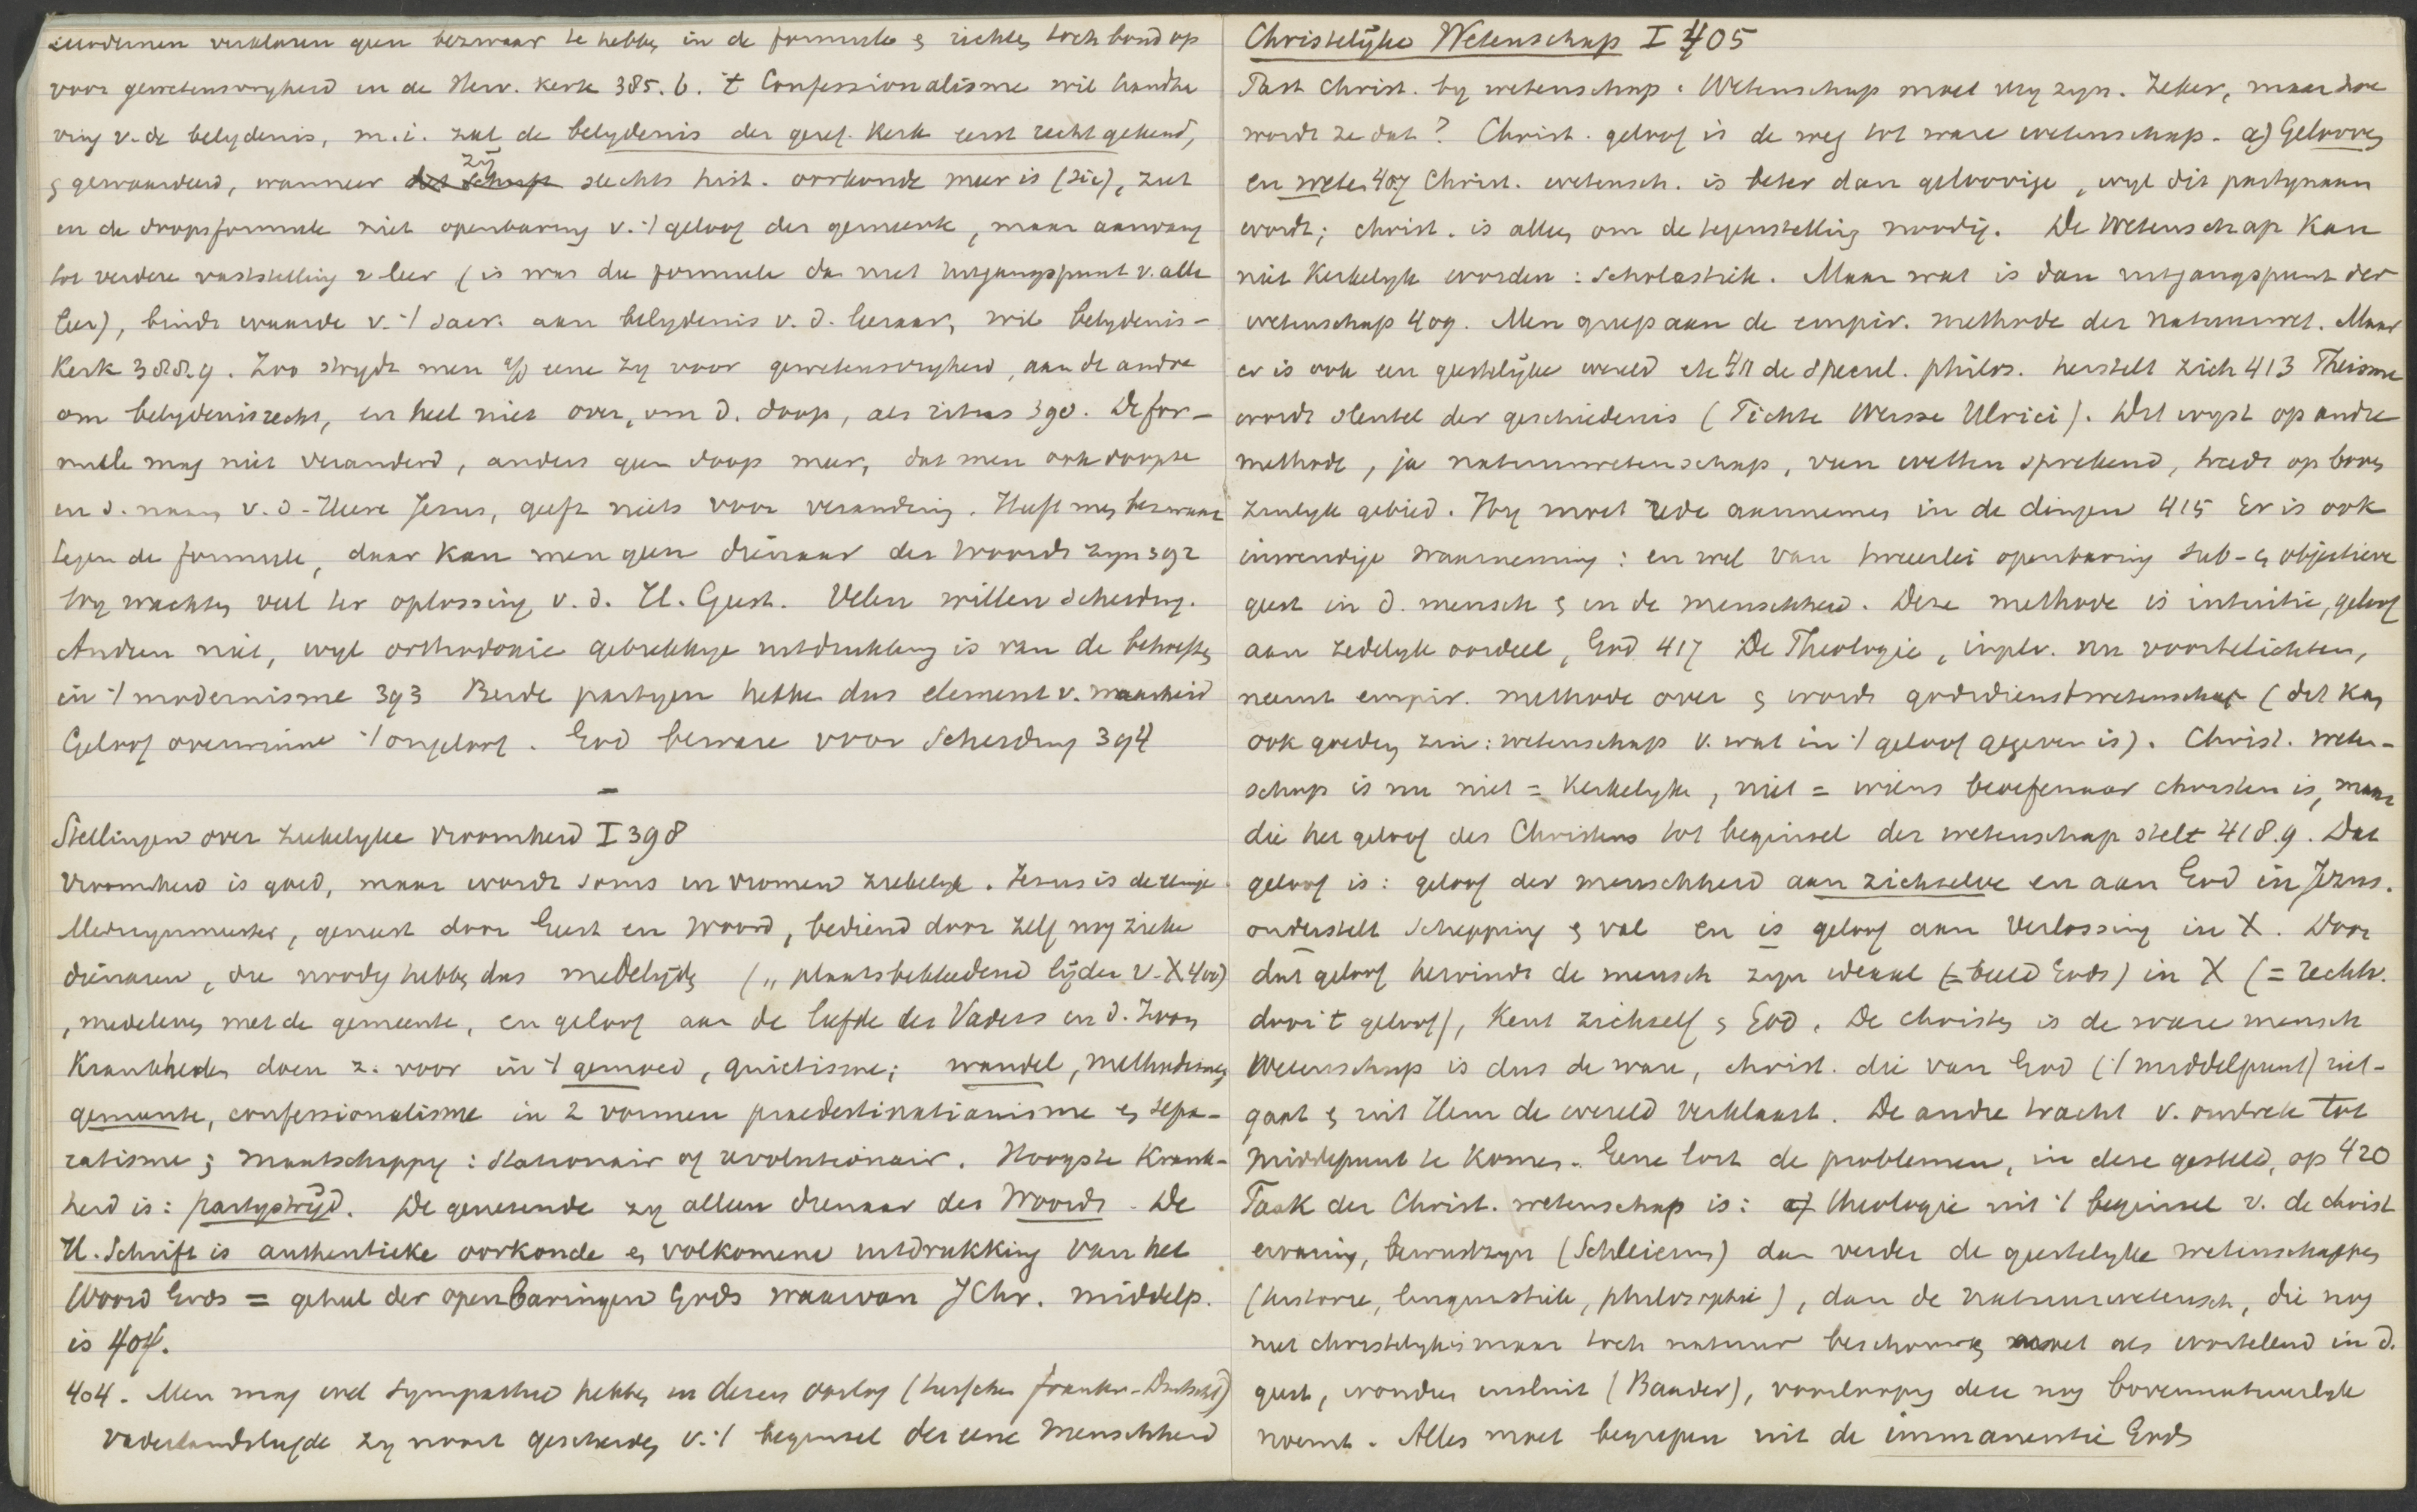 modernen verklaren geen bezwaar te hebben in de formule & richten toch bond op
voor gewetensvryheid in de Herv. Kerk 385.6. 't Confessionalisme wil handha
ving v. de belydenis, m.i. zal de belydenis der geref. Kerk eerst recht gekend,
& gewaardeerd, wanneer zij slechts hist. oorkonde meer is (sic), ziet
in de doopsformule niet openbaring v. 't geloof der gemeente, maar aanvang
tot verdere vaststelling v leer (is was die formule dan niet uitgangspunt v. alle
leer), bindt waarde v. 't sacr. aan belydenis v. d. leeraar, wil belydenis-
Kerk 388.9. Zoo strydt men op eene zy voor gewetensvryheid, aan de andre
om belydenisrecht, en heel niet over, om d. doop, als ritus 390. De for-
mule mag niet veranderd, anders geen doop meer, dat men ook doopte
in d. naam v. d. Heere Jezus, geeft niets voor verandering. Heeft men bezwaar
tegen de formule, daar kan men geen dienaar des Woords zyn 392
Wy wachten veel ter oplossing v. d. H. Geest. Velen willen scheiding.
Andren niet, wyl orthodoxie gebrekkige uitdrukking is van de behoeften
in 't modernisme 393 Beide partyen hebben dus element v. waarheid
Geloof overwinne 't ongeloof. God beware voor Scheiding 394
–
Stellingen over ziekelyke vroomheid I 398
Vroomheid is goed, maar wordt soms in vromen ziekelyk. Jezus is de eenige
Medicynmeester, geneest door Geest en Woord, bediend door zelf nog zieke
dienaren, die noodig hebben dus medelyden („ plaatsbekleedend lijden v. X 400)
, medeleven met de gemeente, en geloof aan de liefde des Vaders en d. Zoon
Krankheden doen z. voor in 't gemoed, quietisme; wandel, methodisme,
gemeente, confessionalisme in 2 vormen praedestinatianisme & sepa-
ratisme; maatschappy: stationair of revolutionair. Hoogste Krank-
heid is: partystrijd. De genezende zy alleen dienaar des Woords. De
H. Schrift is authentieke oorkonde & volkomene uitdrukking van het
Woord Gods = geheel der openbaringen Gods waarvan J Chr. middelp.
is 404.
404. Men mag wel sympathie hebben in dezen oorlog (tusschen Frankr.-Duitschl)
vaderlandsliefde zy nooit gescheiden v. 't beginsel der eene menschheid
Christelijke Wetenschap I 405
Past christ. by wetenschap. Wetenschap moet vry zyn. Zeker, maar hoe
wordt ze dat? Christ. geloof is de weg tot ware wetenschap. a) Gelooven
en weten 407 Christ. wetensch. is beter dan geloovige, wyl dit partynaam
wordt; christ. is alleen om de tegenstelling noodig. De Wetenschap kan
niet Kerkelyk worden: Scholastiek. Maar wat is dan uitgangspunt der
wetenschap 409. Men greep aan de empir. methode der natuurwet. Maar
er is ook een geestelijke wereld etc 411 de Specul. philos. herstelt zich 413 Theisme
wordt sleutel der geschiedenis (Fichte Weisse Ulrici). Dit wyst op andre
methode, ja natuurwetenschap, van wetten sprekend, treedt op boven
zinlyk gebied. Wy moet rede aannemen in de dingen 415 Er is ook
inwendige waarneming: en wel van tweeërlei openbaring sub- & objectieve
geest in d. mensch & in de menschheid. Deze methode is intuitie, geloof
aan zedelyk oordeel, God 417 De Theologie, inpl. v. nu voortelichten,
neemt empir. methode over & wordt godsdienstwetenschap (dit kan
ook goeden zin: wetenschap v. wat in 't geloof gegeven is). Christ. weten-
schap is nu niet = Kerkelyke, niet = wiens beoefenaar christen is, maar
die het geloof des Christens tot beginsel der wetenschap stelt 418.9. Dat
geloof is: geloof der menschheid aan zichzelve en aan God in Jezus.
onderstelt Schepping & val en is geloof aan Verlossing in X. Door
dat geloof hervindt de mensch zyn ideaal (= beeld Gods) in X (= rechtv.
door 't geloof), Kent zichzelf & God. De christen is de ware mensch
Wetenschap is dus de ware, christ. die van God ('t middelpunt) uit-
gaat & uit Hem de wereld verklaart. De andre tracht v. omtrek tot
Middelpunt te komen. Gene lost de problemen, in deze gesteld, op 420
Taak der Christ. wetenschap is: theologie uit 't beginsel v. de christ
ervaring, bewustzyn (Schleierm) dan verder de geestelyke wetenschappen
(historie, linguistiek, philosophie), dan de natuurwetensch, die nog
niet christelyk is maar toch natuur beschouwen moet als wortelend in d.
geest, wonder insluit (Baader), voorloopig deze nog bovennatuurlyk
noemt. Alles moet begrepen uit de immanentie Gods